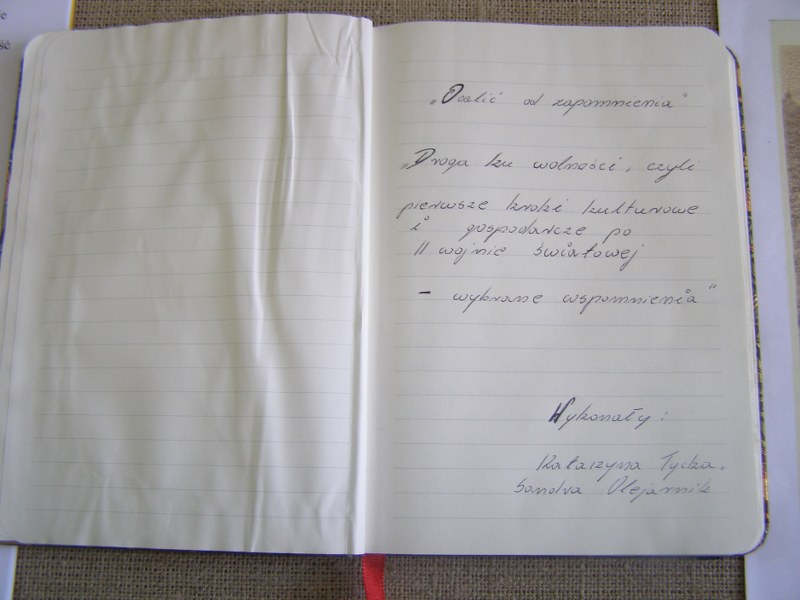 „Ocalić od zapomnienia"
„Droga ku wolności, czyli
pierwsze kroki kulturowe
i gospodarcze po
II wojnie światowej
- wybrane wspomnienia"
Wykonały:
Katarzyna Tycka.
Sandra Olejarnik